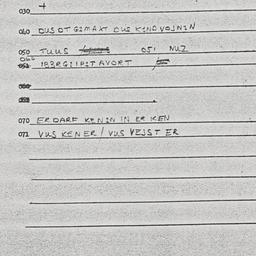 030 +
040 OUSOTGIMAXT OUS KIND VOJNIN
050 TUUS 051 NUZ
060 IBERGIIPIT AVORT
070 ER DARF KENEN IN ER KEN
071 VUS KENER / VUS VEJST ER